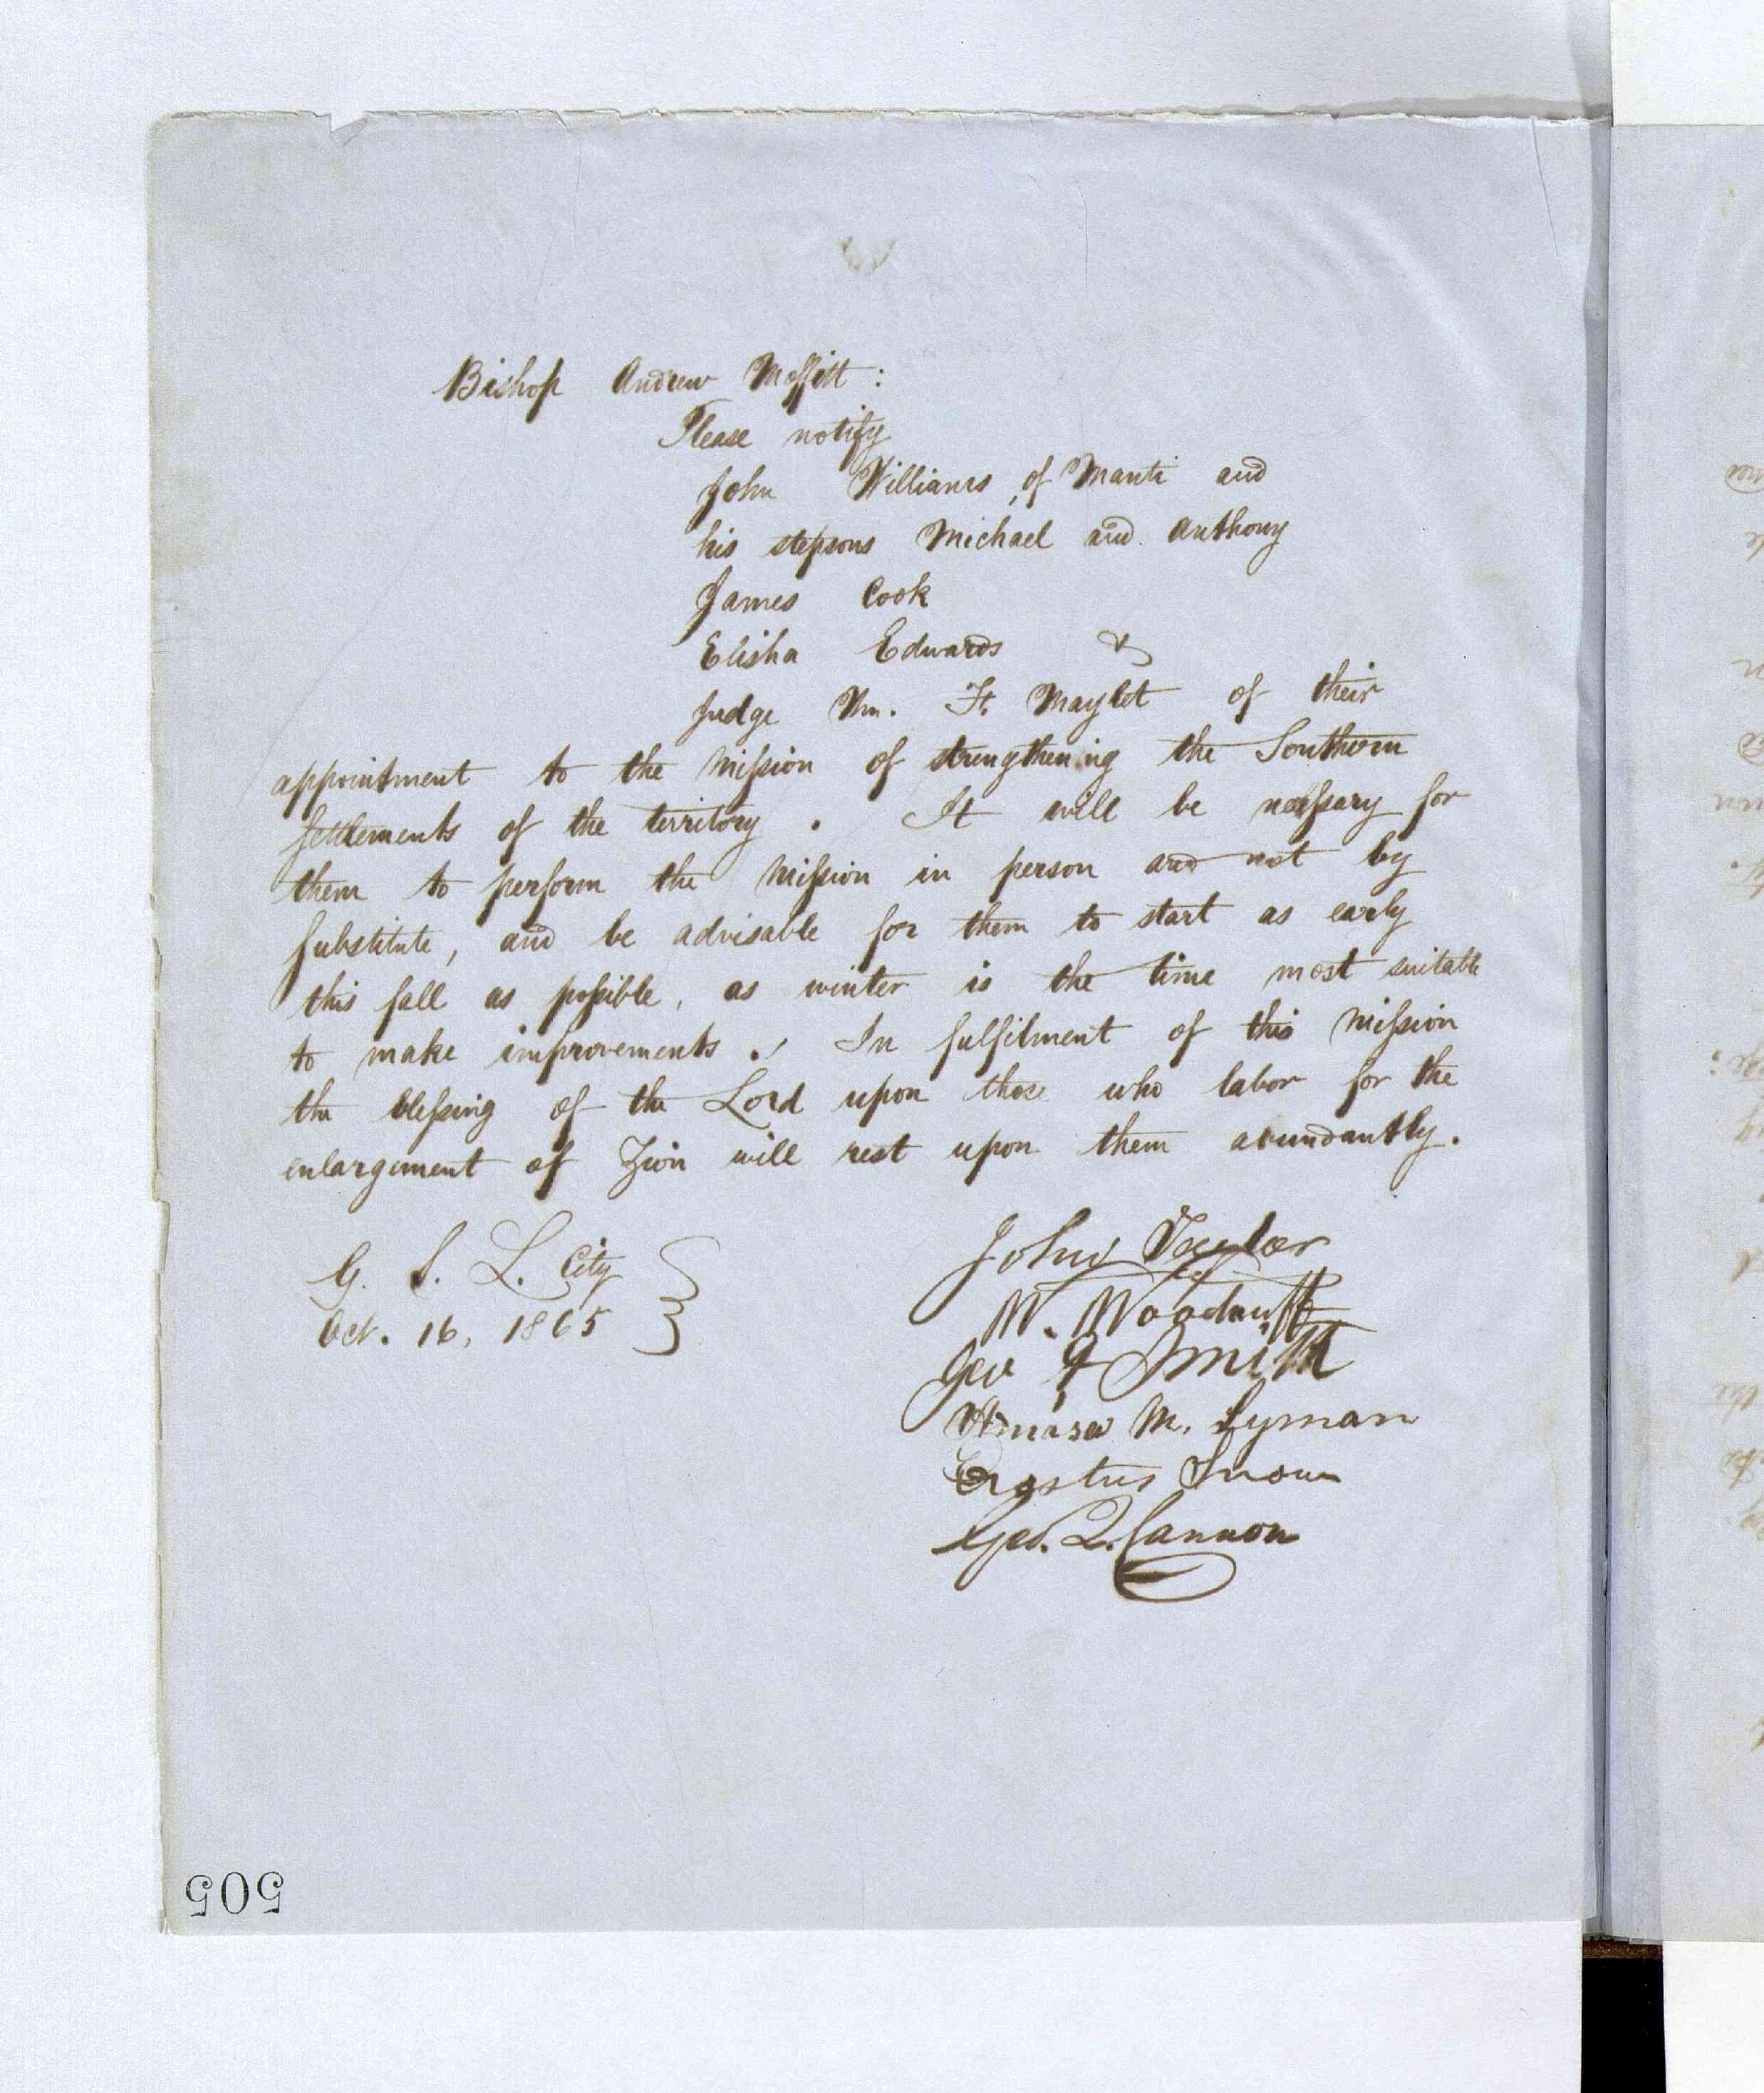 Bishop Andrew Moffitt :
Please notify
John Williams, of Manti and
his stepsons Michael and Anthony
James Cook
Elisha Edwards &
Judge Wm. H. Maylet of their
appointment to the mission of strengthening the Southern
settlements of the territory . It will be necessary for
them to perform the mission in person and not by
substitute, and be advisable for them to start as early
this fall as possible, as winter is the time most suitable
to make improvements . In fulfilment of this mission
the blessing of the Lord upon those who labor for the
enlargement of Zion will rest upon them abundantly.
G. S. L. City
Oct. 16, 1865
John Taylor
W. Woodruff
Geo A Smith
Amasa M. Lyman
Erastus Snow
Geo. Q. Cannon
505